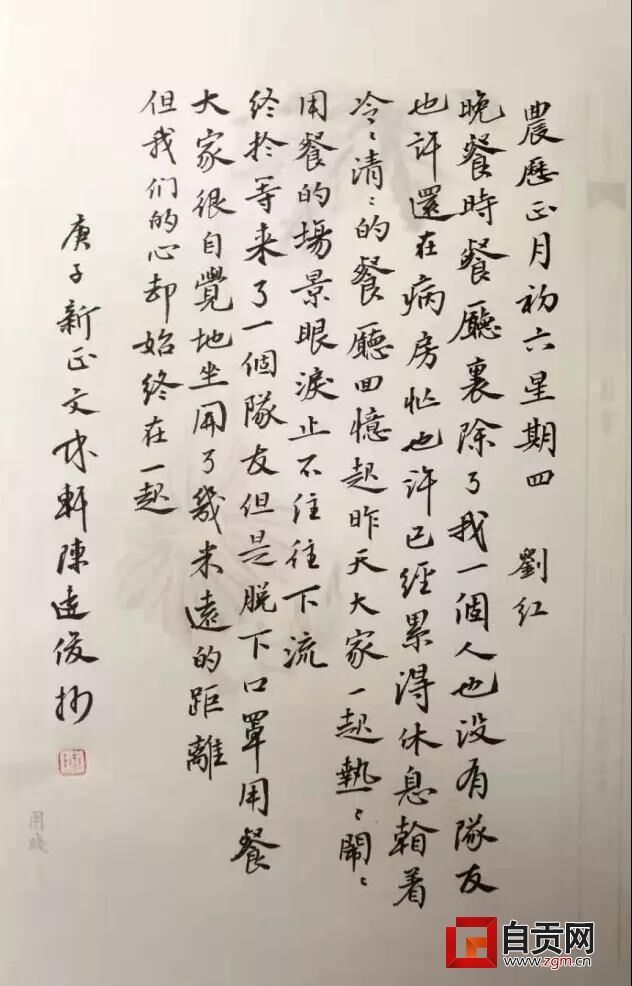 農歷正月初六星期四　劉红
晚餐時餐廳裏除了我一個人也没有隊友
也許還在病房忙也許已經累得休息着
冷〻清〻的餐廳回憶起昨天大家一起熱〻鬧〻
用餐的場景眼淚止不住往下流
终於等来了一個隊友但是脱下口罩用餐
大家很自覺地坐開了幾米遠的距離
但我们的心却始终在一起
庚子新正文軒陳遠俊抄
自贡网
www.zgm.cn